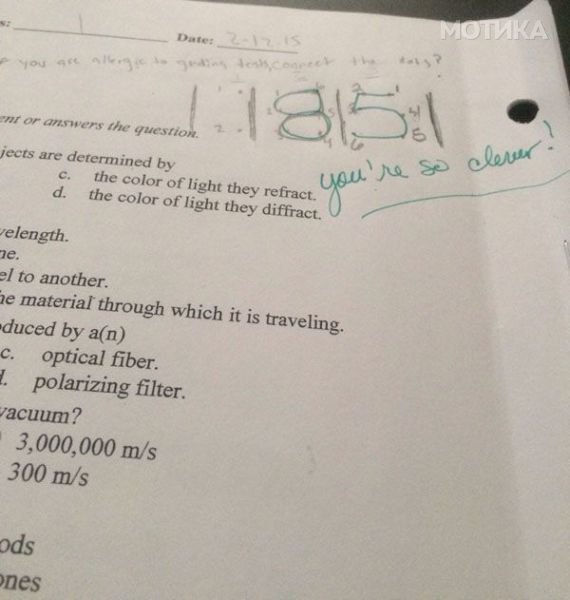 МОТИКА
s:
Date: 2-12-15
you are allergic to grading tests, connect the dots?
1 8 5
ent or answers the question.
you're so clever!
jects are determined by
c. the color of light they refract.
d. the color of light they diffract.
velength.
ne.
el to another.
he material through which it is traveling.
oduced by a(n)
c. optical fiber.
d. polarizing filter.
vacuum?
3,000,000 m/s
300 m/s
ods
ones